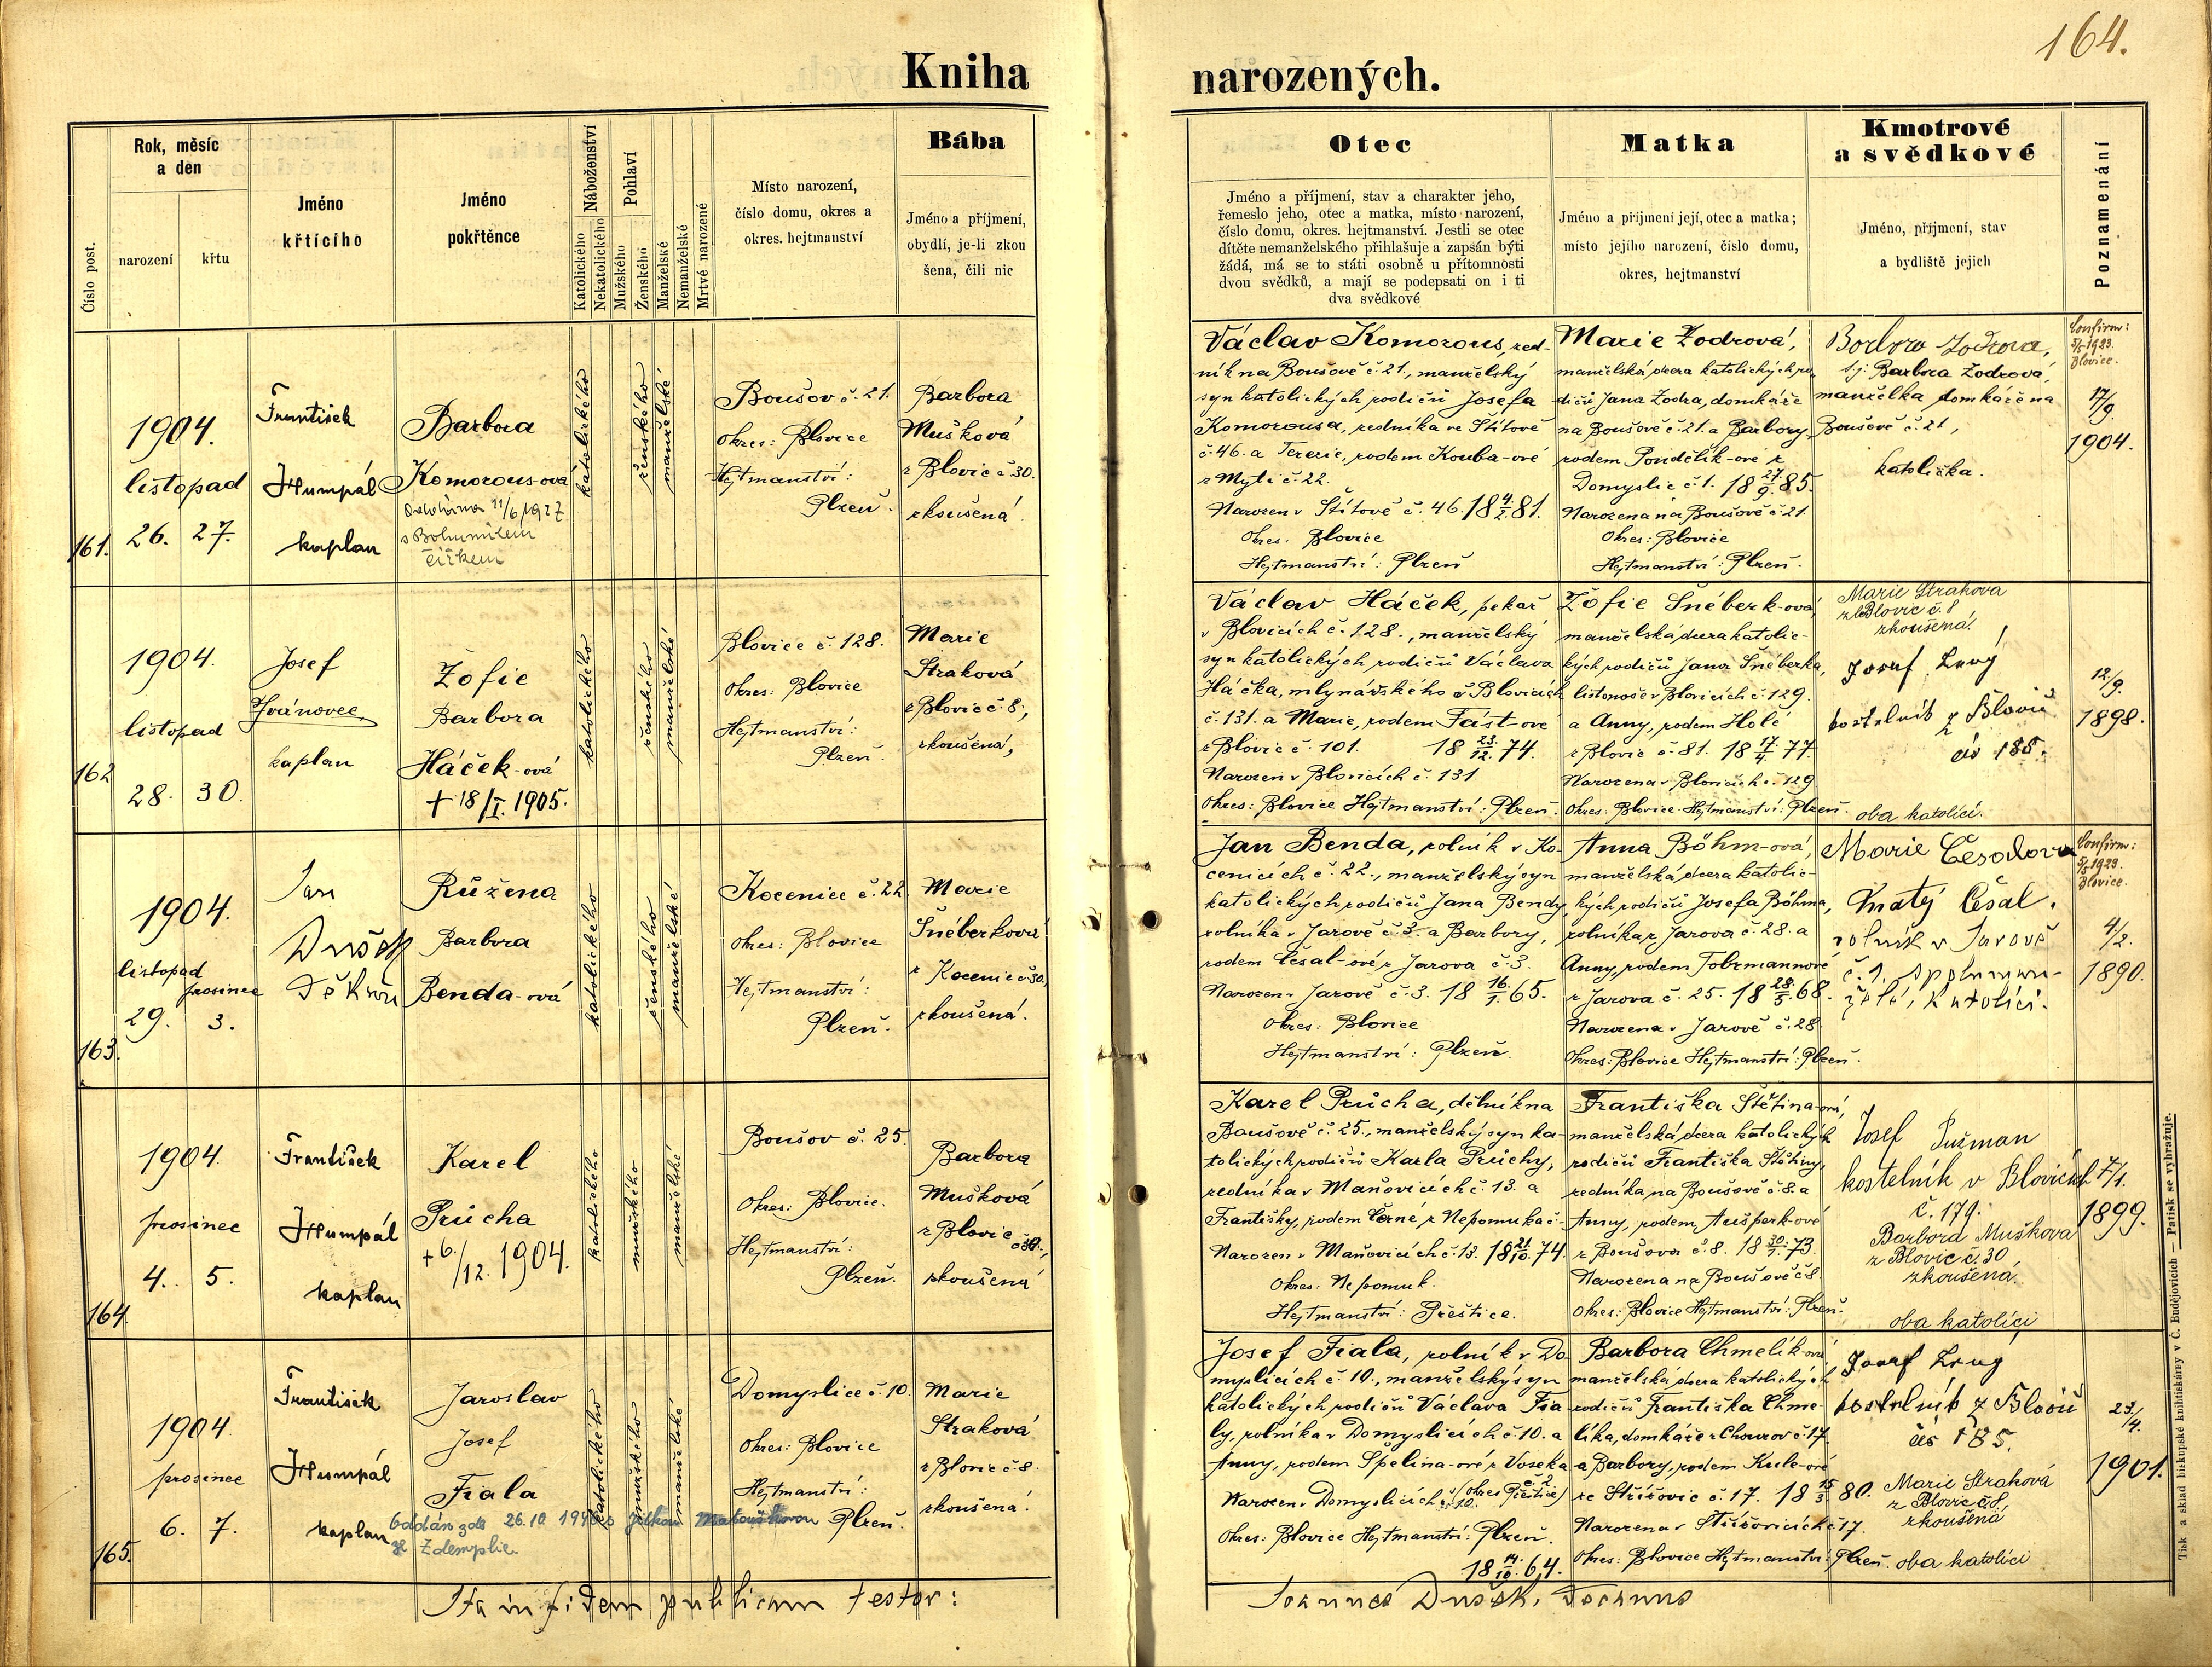 164.
Kniha narozených.
Číslo post.
Rok, měsíc
a den
narození
křtu
Jméno
křtícího
Jméno
pokřtěnce
Náboženství
Katolického
Nekatolického
Pohlaví
Mužského
Ženského
Manželské
Nemanželské
Mrtvě narozené
Místo narození,
číslo domu, okres a
okres. hejtmanství
Bába
Jméno a příjmení,
obydlí, je-li zkou
šena, čili nic
Otec
Jméno a příjmení, stav a charakter jeho,
řemeslo jeho, otec a matka, místo narození,
číslo domu, okres. hejtmanství. Jestli se otec
dítěte nemanželského přihlašuje a zapsán býti
žádá, má se to státi osobně u přítomnosti
dvou svědků, a mají se podepsati on i ti
dva svědkové
Matka
Jméno a příjmení její, otec a matka;
místo jejího narození, číslo domu,
okres, hejtmanství
Kmotrové
a svědkové
Jméno, příjmení, stav
a bydliště jejich
Poznamenání
161.
1904.
listopad
26. 27.
František
Humpál
kaplan
Barbora
Komorous-ová
Oddána 11/6 1927
s Bohumilem
Čížkem
katolického
ženského
manželské
Boušov č. 21.
Okres: Blovice
Hejtmanství:
Plzeň.
Barbora
Mušková
z Blovic č 30.
zkoušená.
Václav Komorous, řed-
ník na Boušově č. 21., manželský
syn katolických rodičů Josefa
Komorousa, ředníka ve Štítově
č. 46. a Terezie, rodem Kouba-ové
z Mýti č. 22.
Narozen v Štítově č. 46. 18 4/2. 81.
Okres: Blovice
Hejtmanství: Plzeň
Marie Žodrová,
manželská dcera katolických ro-
dičů Jana Žodra, domkáře
na Boušově č. 21. a Barbory,
rodem Pondělík-ové z
Domyslic č. 1. 18 27/9. 85.
Narozena na Boušově č. 21.
Okres: Blovice
Hejtmanství: Plzeň.
Barbora Žodrová,
t.j. Barbora Žodrová,
manželka domkáře na
Boušově č. 21,
katolička.
Confirm:
5/5 1923.
Blovice.
17/9.
1904.
162
1904.
listopad
28. 30.
Josef
Ivánovec
kaplan
Žofie
Barbora
Háček-ová
+ 18/I. 1905.
katolického
ženského
manželské
Blovice č. 128.
Okres: Blovice
Hejtmanství:
Plzeň.
Marie
Straková
z Blovic č. 8.,
zkoušená,
Václav Háček, pekař
v Blovicích č. 128., manželský
syn katolických rodičů Václava
Háčka, mlynářského v Blovicích
č. 131. a Marie, rodem Fást-ové
z Blovic č. 101. 18 23./12. 74.
Narozen v Blovicích č. 131.
Okres: Blovice Hejtmanství: Plzeň.
Žofie Šnéberk-ová,
manželská dcera katolic-
kých rodičů Jana Šnéberka,
listonoše v Blovicích č. 129.
a Anny, rodem Holé
z Blovic č. 81. 18 17./4. 77.
Narozena v Blovicích č. 129
Okres: Blovice Hejtmanství: Plzeň.
Marie Straková
z Blovic č. 8
zkoušená.
Josef Levý
kostelník z Blovic
čís 185.
oba katolíci.
12/9.
1898.
163.
1904.
listopad prosinec
29. 3.
Jan
Dušek
Děkan
Růžena
Barbora
Benda-ová
katolického
ženského
manželské
Kocenice č. 22
Okres: Blovice
Hejtmanství:
Plzeň.
Marie
Šnéberková
z Kocenic č 30.,
zkoušená.
Jan Benda, rolník v Ko-
cenicích č. 22., manželský syn
katolických rodičů Jana Bendy,
rolníka v Jarově č. 3. a Barbory,
rodem Česal-ové z Jarova č. 3.
Narozen v Jarově č. 3. 18 16/1. 65.
Okres: Blovice
Hejtmanství: Plzeň.
Anna Böhm-ová,
manželská dcera katolic-
kých rodičů Josefa Böhma,
rolníka z Jarova č. 28. a
Anny, rodem Tobrmannové
z Jarova č. 25. 18 28./5. 68.
Narozena v Jarově č. 28
Okres: Blovice Hejtmanství: Plzeň.
Marie Česalova
Matěj Česal.
rolník v Jarově
č. 1,
katolíci.
Confirm:
5/5 1923.
Blovice.
4/2.
1890.
164.
1904.
prosinec
4. 5.
František
Humpál
kaplan
Karel
Průcha
+ 6./12. 1904.
katolického
mužského
manželské
Boušov č. 25.
Okres: Blovice.
Hejtmanství:
Plzeň.
Barbora
Mušková
z Blovic č 30.,
zkoušená
Karel Průcha, dělník na
Boušově č. 25., manželský syn ka-
tolických rodičů Karla Průchy,
ředníka v Maňovicích č. 13. a
Františky, rodem Černé z Nepomuka č.
Narozen v Maňovicích č. 13. 18 21./10. 74.
Okres: Nepomuk.
Hejtmanství: Přeštice.
Františka Štětina-ová,
manželská dcera katolických
rodičů Františka Štětiny,
ředníka na Boušově č. 8. a
Anny, rodem Aušperk-ové
z Boušova č. 8. 18 30/1. 73.
Narozena na Boušově č 8.
Okres: Blovice Hejtmanství: Plzeň.
Josef Pužman
kostelník v Blovicích
č. 179.
Barbora Mušková
z Blovic č. 30
zkoušená.
oba katolíci
7/1.
1899.
165.
1904.
prosinec
6. 7.
František
Humpál
kaplan
Jaroslav
Josef
Fiala
Oddán zde 26.10 194 s Jitkou Matouškovou
ze Zdemyslic
katolického
mužského
manželské
Domyslice č. 10.
Okres: Blovice
Hejtmanství:
Plzeň.
Marie
Straková
z Blovic č 8.
zkoušená.
Josef Fiala, rolník v Do-
myslicích č. 10., manželský syn
katolických rodičů Václava Fia-
ly, rolníka v Domyslicích č. 10. a
Anny, rodem Špelina-ové z Voseka
č. 2. (okres Přeštice)
Narozen v Domyslicích č. 10.
Okres: Blovice Hejtmanství: Plzeň.
18 14./10. 64.
Barbora Chmelík-ová,
manželská dcera katolických
rodičů Františka Chme-
líka, domkáře z Chouzov č. 17.
a Barbory, rodem Kule-ové
ze Střížovic č. 17. 18 15/3. 80.
Narozena v Střížovicích č 17.
Okres: Blovice Hejtmanství: Plzeň.
Josef Levý
kostelník z Blovic
čís 185.
Marie Straková
z Blovic č. 8.
zkoušená
oba katolíci
23./4.
1901.
Ita in fidem publicam testor:
Joannes Dušek, Decanus
Tisk a sklad biskupské knihtiskárny v Č. Budějovicích — Patisk se vyhražuje.